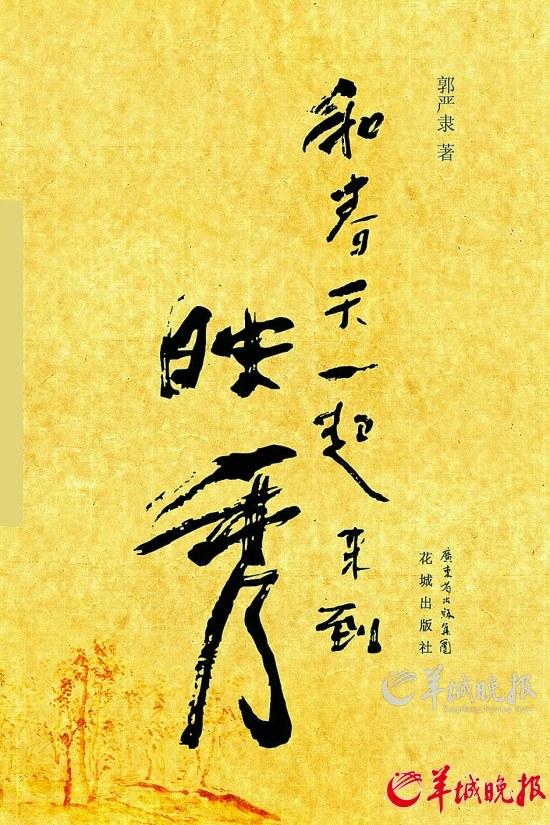 郭严隶 著
和春天一起来到
映秀
廣東省出版集團
花城出版社
羊城晚报
羊城晚报